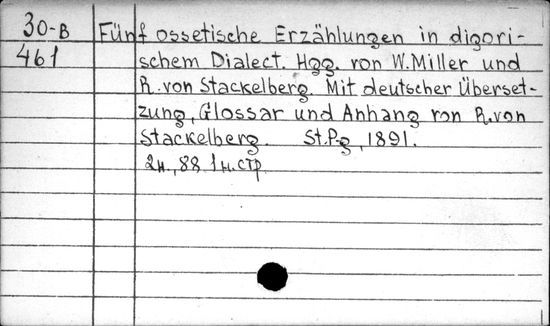 30-B Fünf ossetische Erzählungen in digori-
461 schem Dialect. Hgg. von W. Miller und
R. von Stackelberg. Mit deutscher Überset-
zung, Glossar und Anhang von R. von
Stackelberg. St.P-g, 1891.
2н., 88 1н. стр